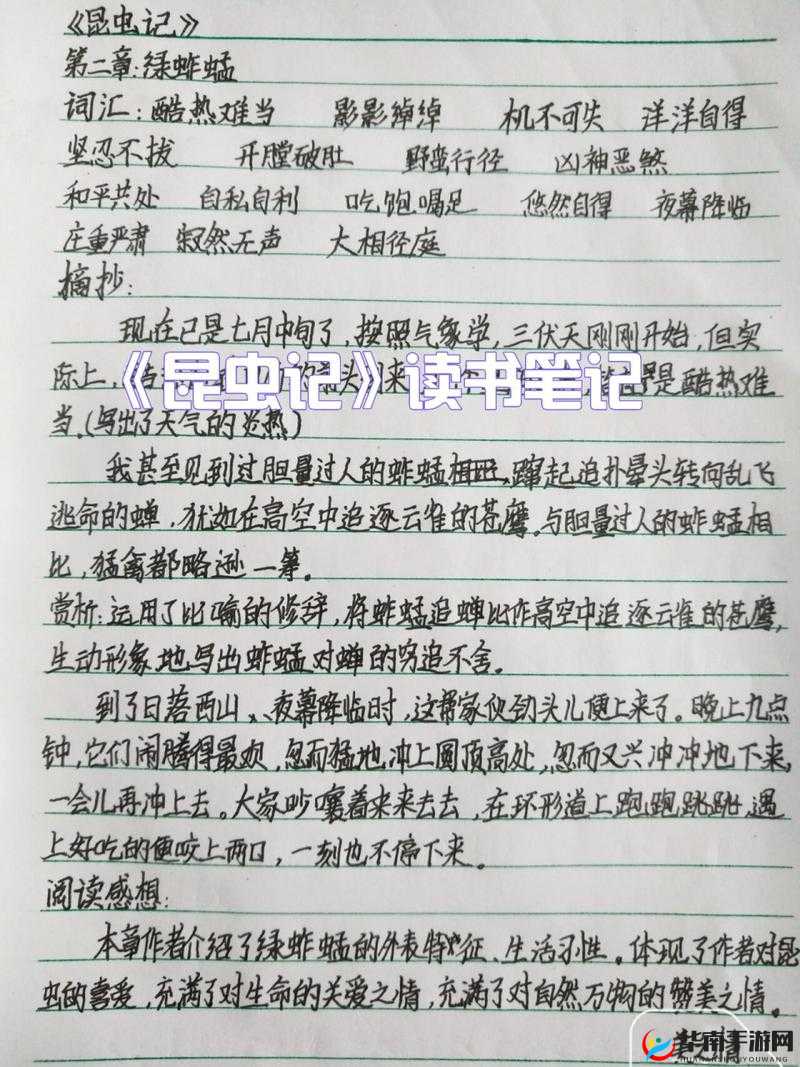 《昆虫记》
第二章:绿蚱蜢
词汇:酷热难当 影影绰绰 机不可失 洋洋自得
坚忍不拔 开膛破肚 野蛮行径 凶神恶煞
和平共处 自私自利 吃饱喝足 悠然自得 夜幕降临
庄重严肃 寂然无声 大相径庭
摘抄:
现在已是七月中旬了,按照气象学,三伏天刚刚开始,但实
际上,头来是酷热难
《昆虫记》读书笔记
当。(写出了天气的炎热)
我甚至见到过胆量过人的蚱蜢蹿起追扑晕头转向乱飞
逃命的蝉,犹如在高空中追逐云雀的苍鹰。与胆量过人的蚱蜢相
比,猛禽都略逊一筹。
赏析:运用了比喻的修辞,将蚱蜢追蝉比作高空中追逐云雀的苍鹰,
生动形象地写出蚱蜢对蝉的穷追不舍。
到了日落西山、夜幕降临时,这帮家伙劲头儿便上来了。晚上九点
钟,它们闹腾得最欢,忽而猛地冲上圆顶高处,忽而又兴冲冲地下来,
一会儿再冲上去。大家吵嚷着来来去去,在环形道上跑跑跳跳,遇
上好吃的便咬上两口,一刻也不停下来。
阅读感想:
本章作者介绍了绿蚱蜢的外表特征、生活习性。体现了作者对昆
虫的喜爱,充满了对生命的关爱之情,充满了对自然万物的赞美之情。
华南手游网
HUANANSHOUYOUWANG